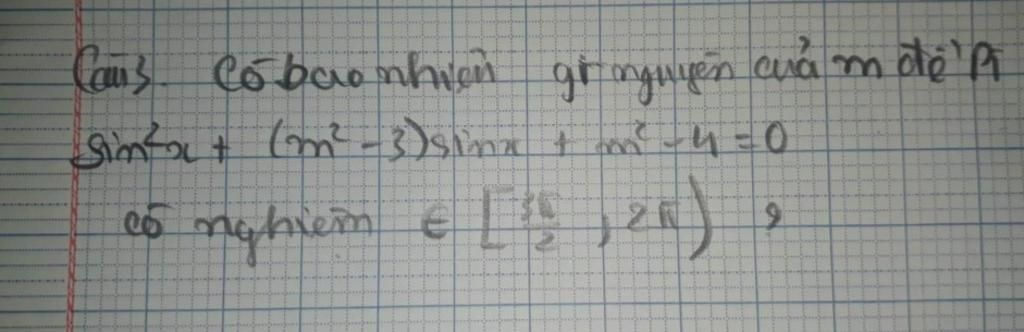 Câu 3. Có bao nhiêu gt nguyên của m để Pt
sin²x + (m² - 3)sinx + m² - 4 = 0
có nghiệm ∈ [3π/2, 2π) ?